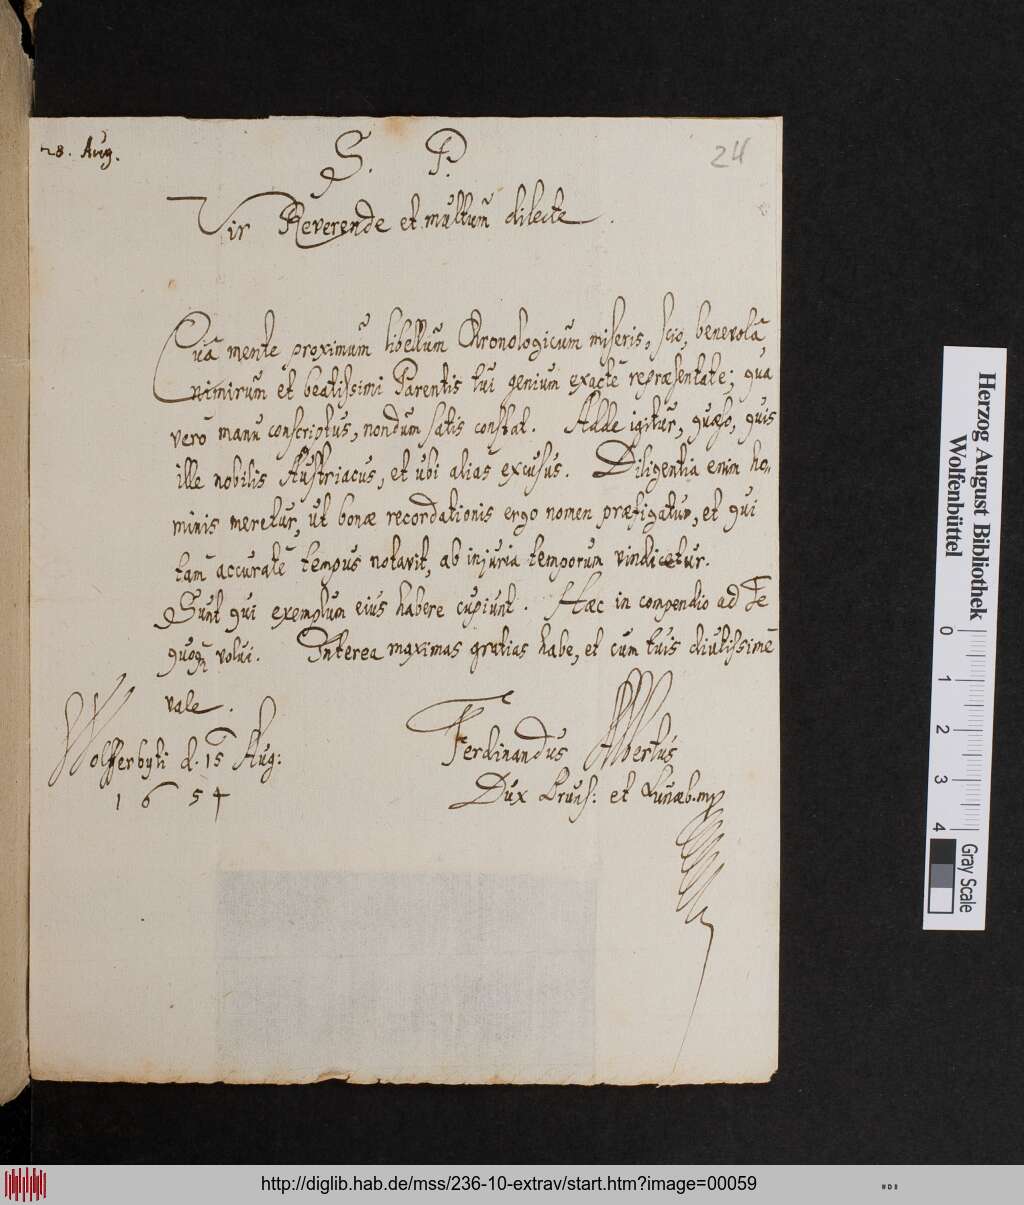 28. Aug.
S. P.
24
Vir Reverende et multum dilecte.
Quâ mente proximum libellum Chronologicum miseris, scio, benevolâ,
nimirum et beatissimi Parentis tui genium exactè repræsentate; qua
verò manu conscriptus, nondum satis constat. Adde igitur, quæso, quis
ille nobilis Austriacus, et ubi alias excusus. Diligentia enim ho-
minis meretur, ut bonæ recordationis ergo nomen præfigatur, et qui
tam accuratè tempus notavit, ab injuria temporum vindicetur.
Sunt qui exemplum eius habere cupiunt. Hæc in compendio ad Te
quoq; volui. Interea maximas gratias habe, et cum tuis diutissimè
vale.
Wolfferbyti d. 15 Aug:
1654
Ferdinandus Albertus
Dux Bruns: et Lunæb. mp
Herzog August Bibliothek
Wolfenbüttel
0 1 2 3 4
Gray Scale
http://diglib.hab.de/mss/236-10-extrav/start.htm?image=00059